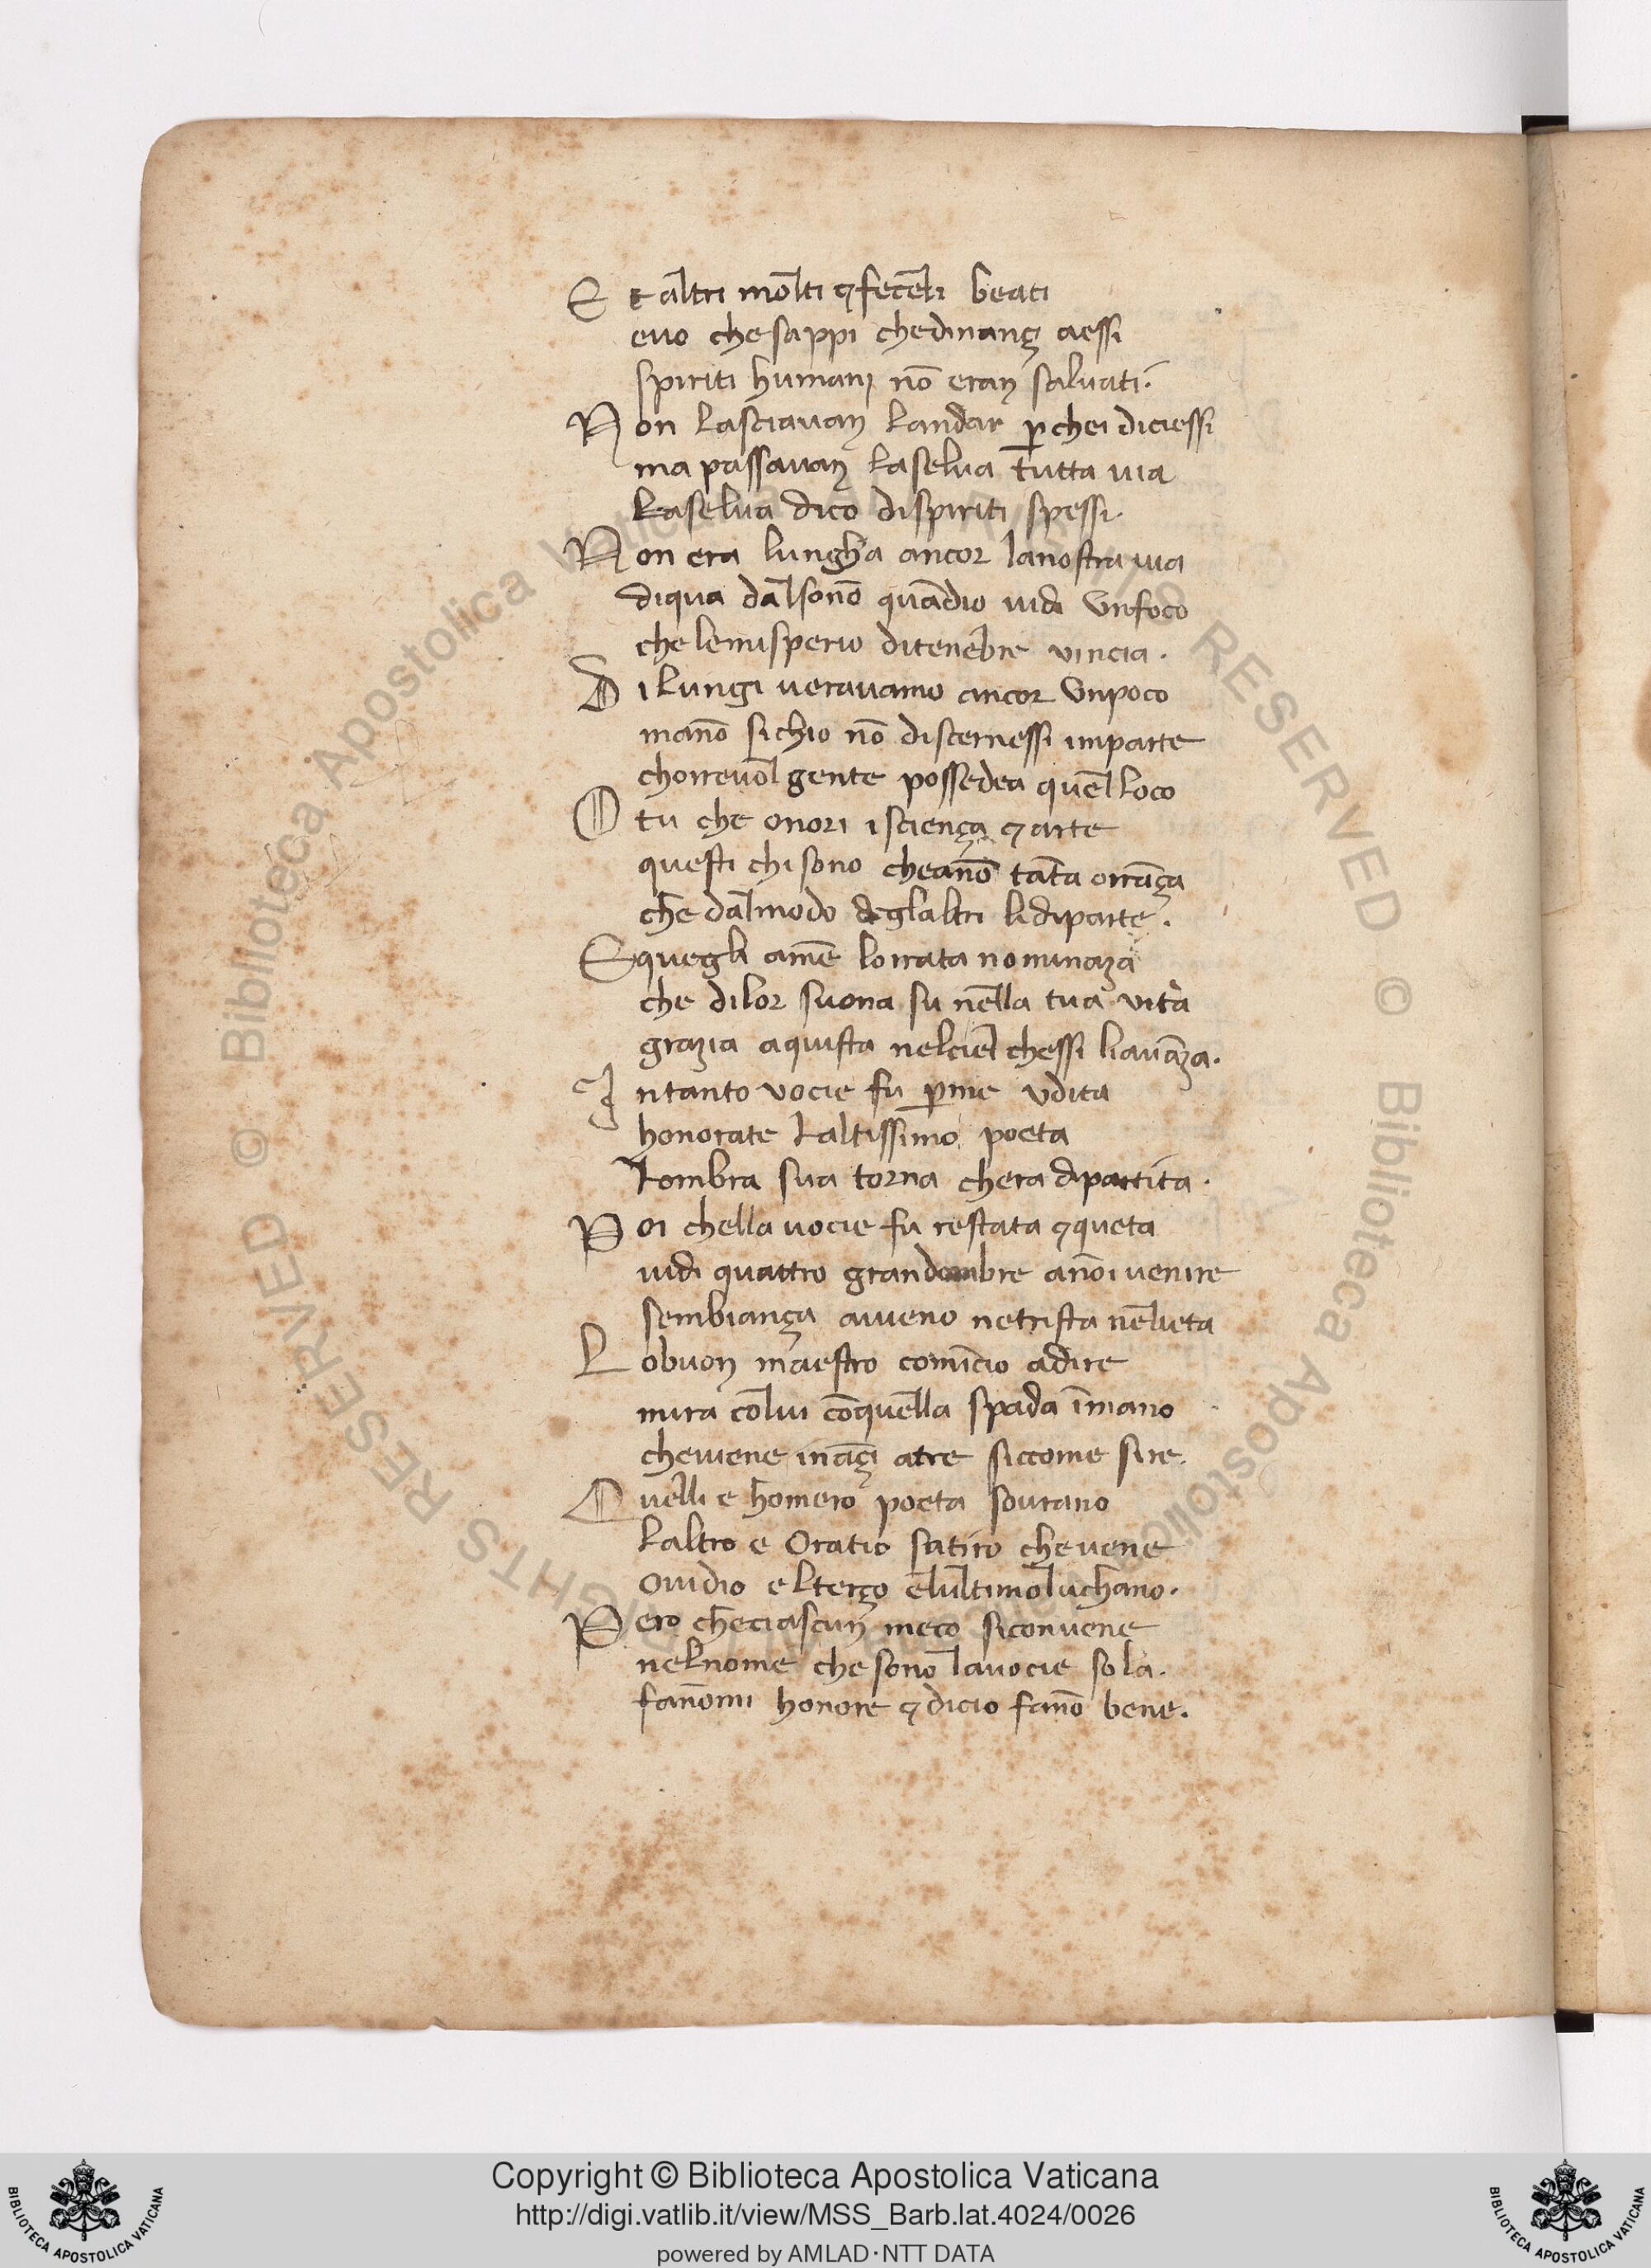 E t altri molti ⁊ fecēli beati
euo che sappi chedinanç aessi
spiriti humani nō eran saluati.
N on lasciauan landar ꝑchei diciessi
ma passauan laselua tutta uia
laselua dico dispiriti spessi.
N on era lungha ancor lanostra uia
diqua dalsonō quādio uidi vnfoco
che lemisperio ditenebre vincia.
D ilungi uerauamo ancor vnpoco
manō sichio nō discernessi imparte
chorreuol gente possedea quel loco
O tu che onori i sciença ⁊ arte
questi chi sono cheanō tāta orrāça
che dalmodo deglaltri lidiparte.
E quegli amē lorrata nominaza
che dilor suona su nella tua vita
grazia aquista nelciel chessi liauāza.
I ntanto vocie fu ꝑme vdita
honorate laltissimo poeta
lombra sua torna chera dipartita.
P oi chella uocie fu restata ⁊ queta
uidi quattro grandombre anoi uenire
sembiança aiueno netrista nelieta
L obuon maestro comīcio adire
mira colui cōquella spada īmano
cheuiene ināçi atre siccome sire.
Q uelli e homero poeta sourano
laltro e Oratio satiro cheuene
Ouidio elterço elultimoluchano.
P ero checiascun meco siconuene
nelnome che sonō lauocie sola.
fanōmi honore ⁊ dicio fanō bene.
Copyright © Biblioteca Apostolica Vaticana
http://digi.vatlib.it/view/MSS_Barb.lat.4024/0026
powered by AMLAD·NTT DATA
BIBLIOTECA APOSTOLICA VATICANA
BIBLIOTECA APOSTOLICA VATICANA
© Biblioteca Apostolica Vaticana ALL RIGHTS RESERVED
© Biblioteca Apostolica Vaticana ALL RIGHTS RESERVED